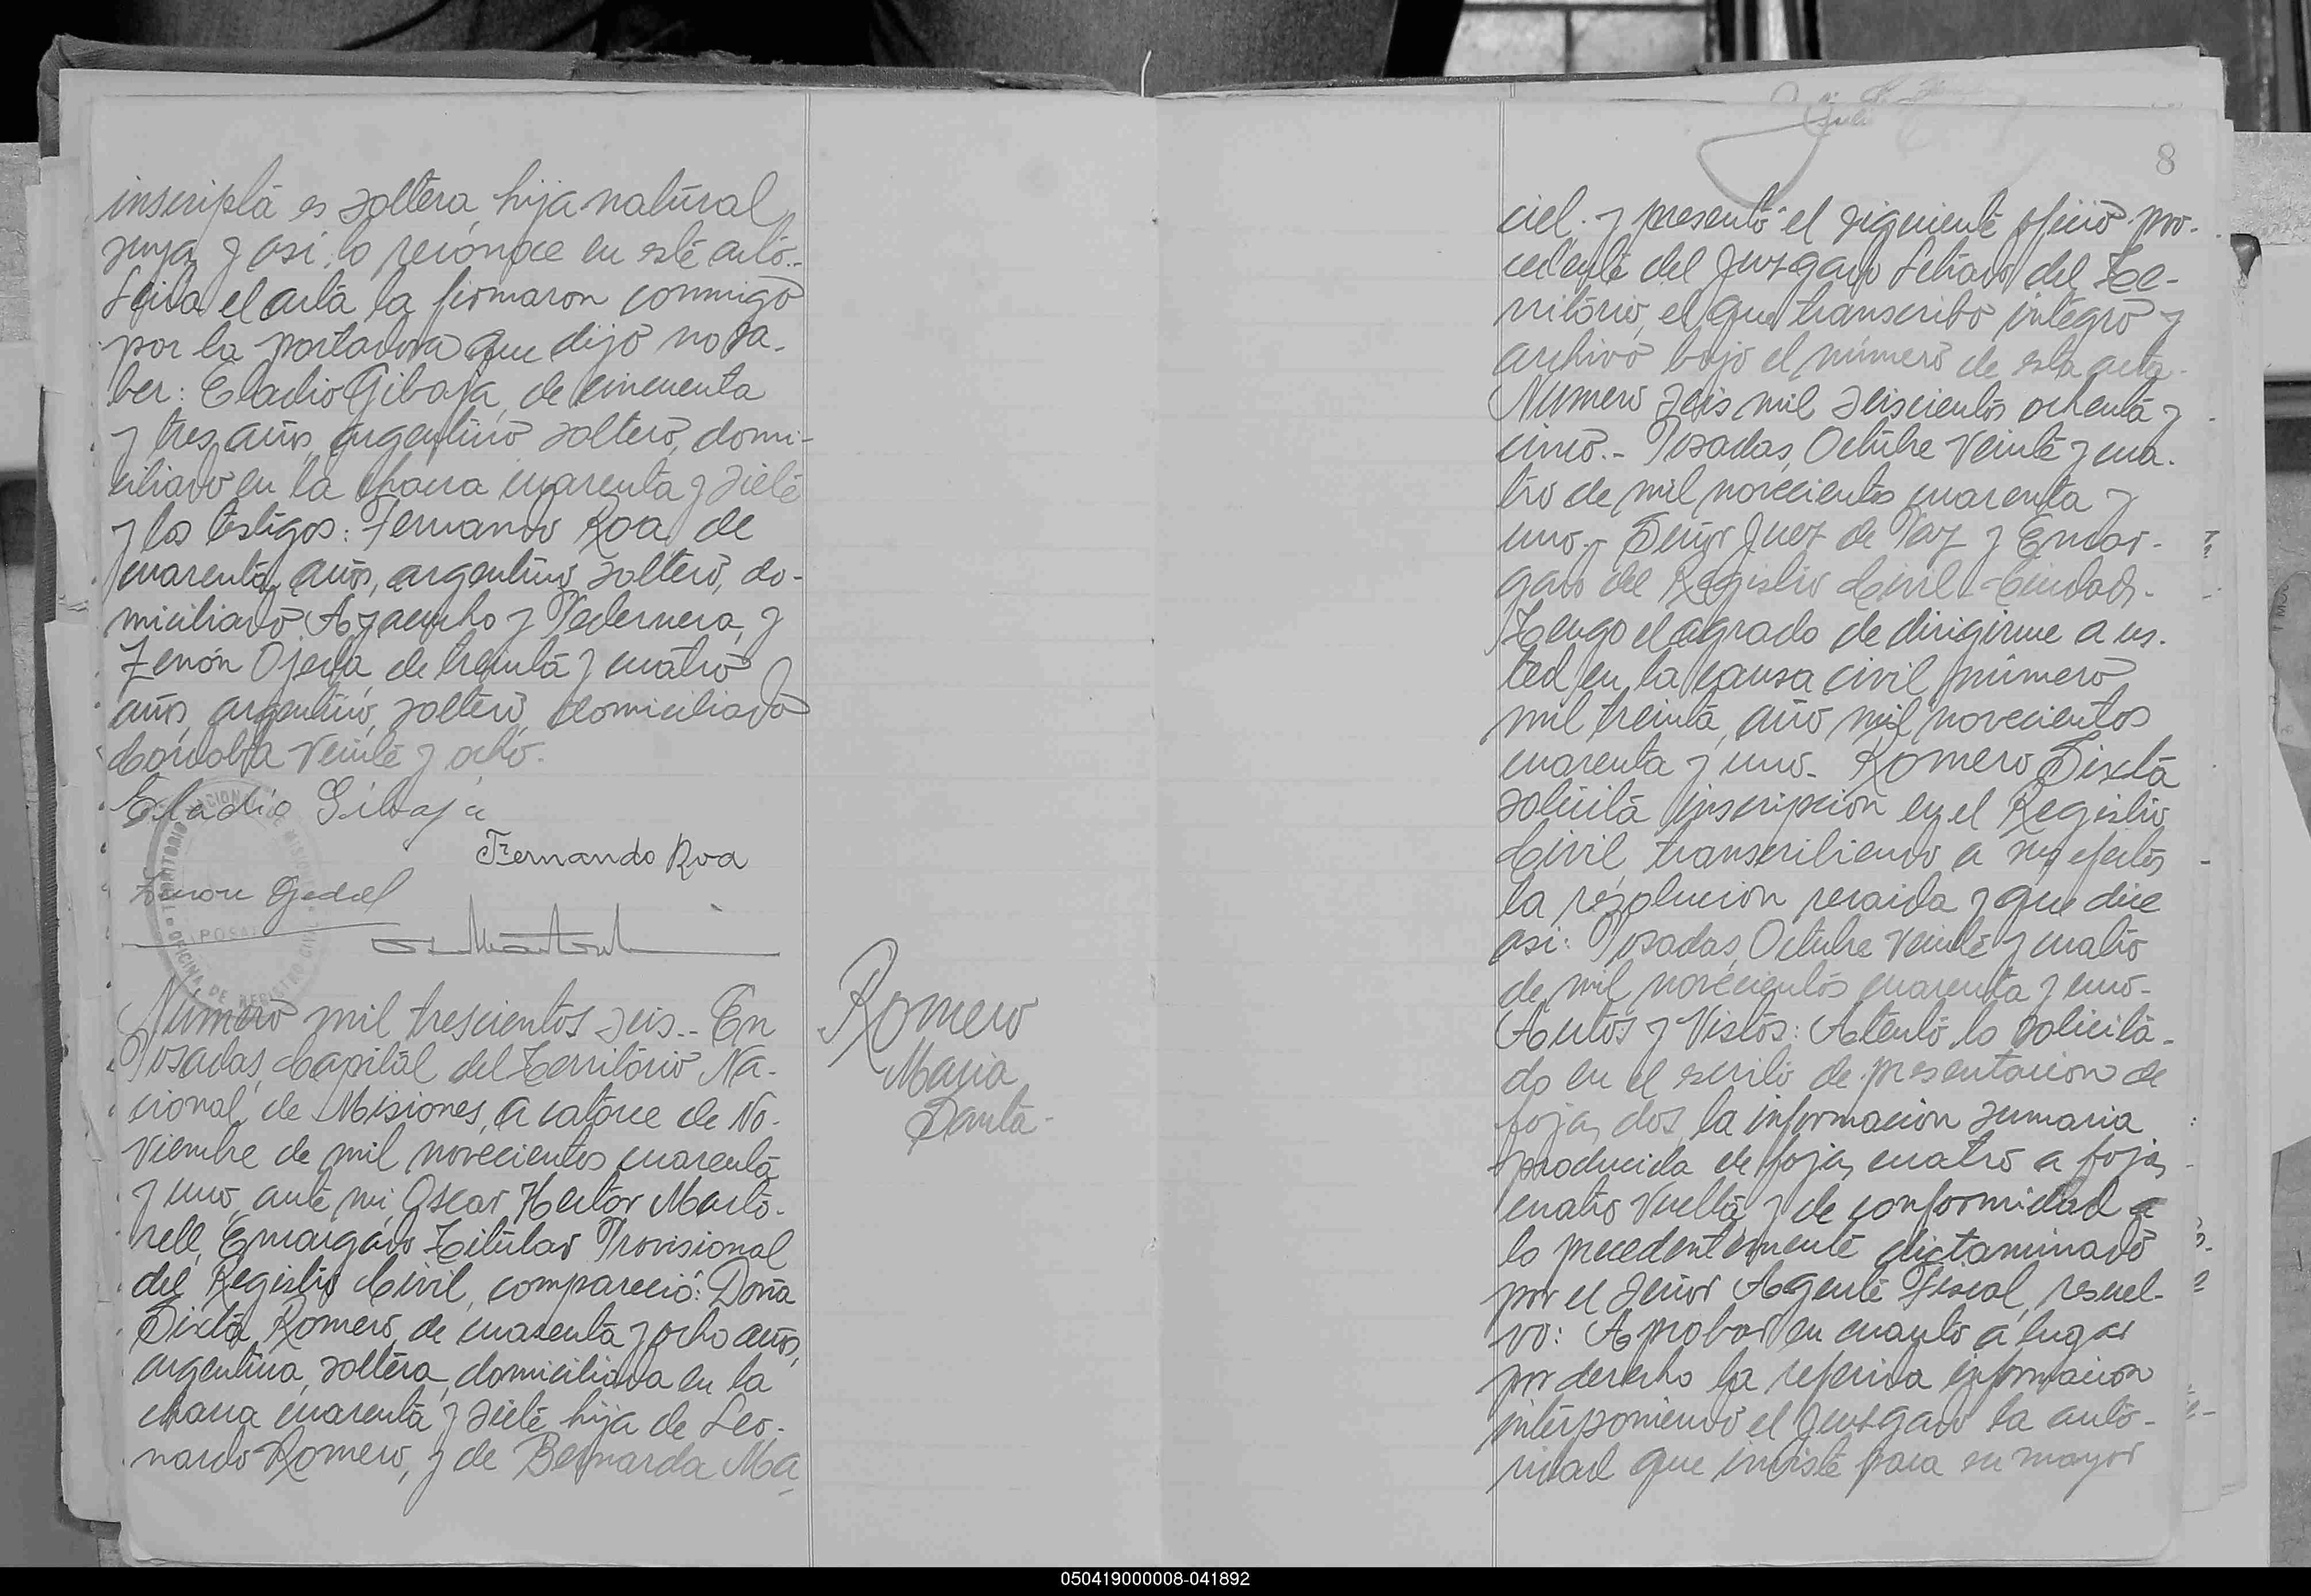 inscripta es soltera, hija natural
suya, y asi lo reconoce en este acto.-
Leida el acta la firmaron conmigo
por la portadora que dijo no sa-
ber: Eladio Gibaja, de cincuenta
y tres años, argentino soltero, domi-
ciliado en la chacra cuarenta y siete
y los testigos: Fernando Roa, de
cuarenta, años, argentino soltero, do-
miciliado Ayacucho y Pedernera, y
Zenón Ojeda, de treinta y cuatro
años, argentino, soltero, domiciliado
Cordoba Veinte y ocho.
Eladio Gibaja
Fernando Roa
Zenon Ojeda
Número mil trescientos seis.- En
Posadas, Capital del Territorio Na-
cional, de Misiones, a catorce de No-
viembre de mil novecientos cuarenta
y uno, ante mi, Oscar Hector Marto-
rell, Encargado Titular Provisional
del Registro Civil, compareció: Doña
Sixta Romero, de cuarenta y ocho años,
argentina, soltera, domiciliada en la
chacra cuarenta y siete, hija de Leo-
nardo Romero, y de Bernarda Ma
Romero
Maria
Santa-
8
ciel. y presentó el siguiente oficio pro-
cedente del Juzgado Letrado del Te-
rritorio, el que transcribo integro y
archivo bajo el número de esta acta.
Numero seis mil seiscientos ochenta y
cinco.- Posadas, Octubre Veinte y cua-
tro de mil novecientos cuarenta y
uno.- Señor Juez de Paz y Encar-
gado del Registro Civil - Ciudad.-
Tengo el agrado de dirigirme a us-
ted en la causa civil número
mil treinta, año mil novecientos
cuarenta y uno- Romero Sixta
solicita inscripcion en el Registro
Civil, transcribiendo a sus efectos
la resolucion recaida y que dice
asi: Posadas, Octubre Veinte y cuatro
de mil novecientos cuarenta y uno-
Autos y Vistos: Atento lo solicita-
do en el escrito de presentacion de
fojas dos, la informacion sumaria
producida de fojas cuatro a fojas
cuatro Vuelta y de conformidad a
lo precedentemente dictaminado
por el señor Agente Fiscal, resuel-
vo: Aprobar en cuanto a lugar
por derecho la referida informacion
interponiendo el Juzgado la auto-
ridad que inviste para su mayor
050419000008-041892